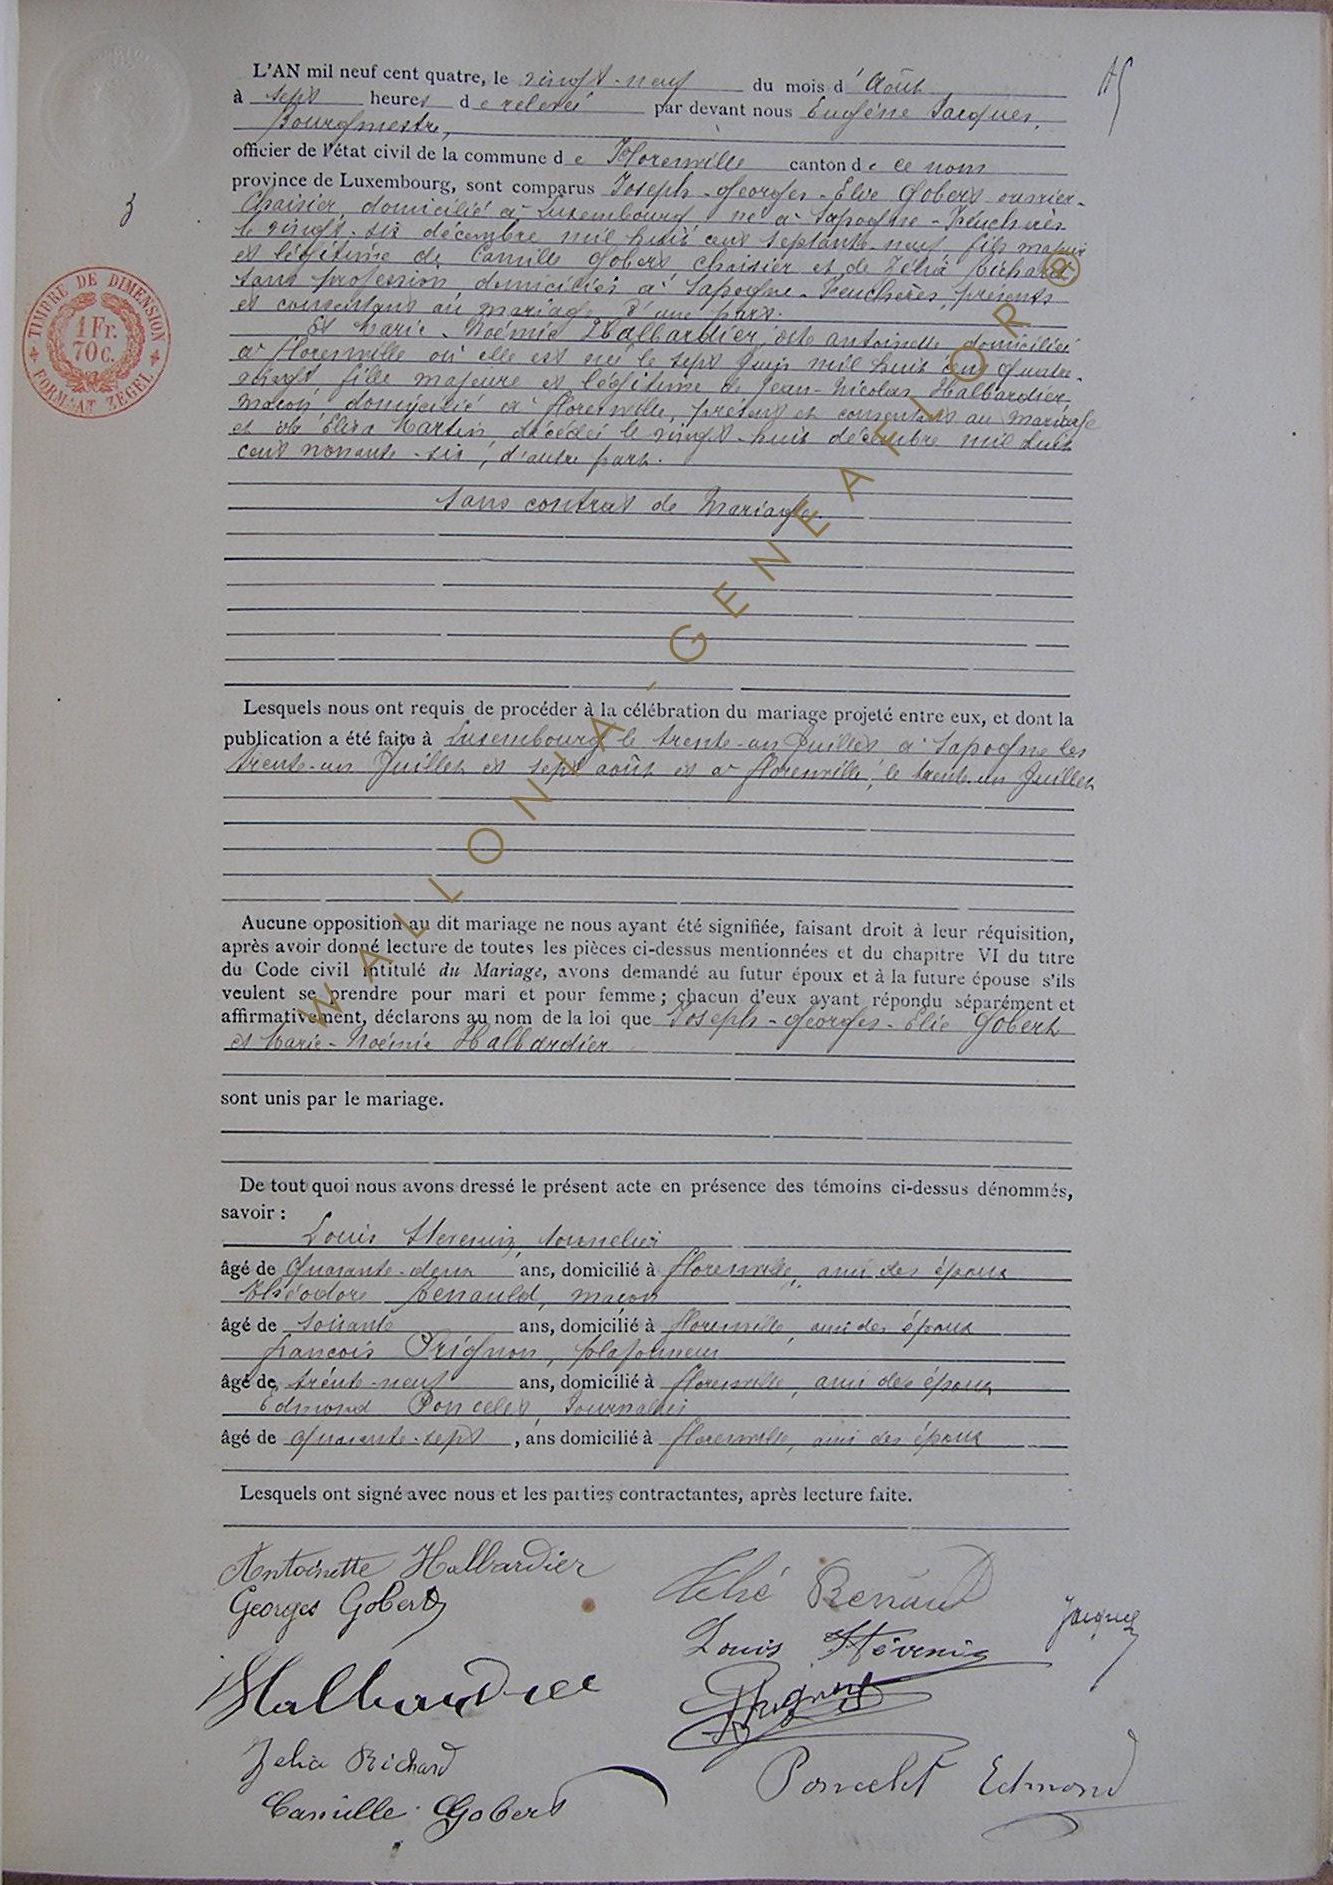 15
L'AN mil neuf cent quatre, le vingt-neuf du mois d'Août
à sept heures de relevée par devant nous Eugène Jacques,
Bourgmestre,
officier de l'état civil de la commune de Florenville canton de ce nom
province de Luxembourg, sont comparus Joseph-Georges-Elie Gobert ouvrier-
chaisier domicilié à Luxembourg né à Sapogne-Feuchères
le vingt-six décembre mil huit cent septante-neuf fils majeur
et légitime de Camille Gobert chaisier et de Zélia Richard
sans profession domiciliés à Sapogne-Feuchères, présents
et consentans au mariage d'une part.
Et Marie-Noémie Halbardier, dite Antoinette domiciliée
à Florenville où elle est née le sept Juin mil huit cent quatre-
vingt, fille majeure et légitime de Jean-Nicolas Halbardier,
maçon domicilié à Florenville, présent et consentant au mariage
et de Eliza Martin décédée le vingt-huit décembre mil huit
cent nonante-six, d'autre part.
Sans contrat de Mariage.
Lesquels nous ont requis de procéder à la célébration du mariage projeté entre eux, et dont la
publication a été faite à Luxembourg le trente-un Juillet à Sapogne les
trente-un Juillet et sept août et à Florenville, le trente-un Juillet
Aucune opposition au dit mariage ne nous ayant été signifiée, faisant droit à leur réquisition,
après avoir donné lecture de toutes les pièces ci-dessus mentionnées et du chapitre VI du titre
du Code civil intitulé du Mariage, avons demandé au futur époux et à la future épouse s'ils
veulent se prendre pour mari et pour femme ; chacun d'eux ayant répondu séparément et
affirmativement, déclarons au nom de la loi que Joseph-Georges-Elie Gobert
et Marie-Noémie Halbardier
sont unis par le mariage.
De tout quoi nous avons dressé le présent acte en présence des témoins ci-dessus dénommés,
savoir :
Louis Stevenin, tonnelier
âgé de Quarante-deux ans, domicilié à Florenville, ami des époux
Théodore Renauld, maçon
âgé de soixante ans, domicilié à Florenville, ami des époux
François Prignon, plafonneur
âgé de trente-neuf ans, domicilié à Florenville, ami des époux
Edmond Poncelet, Journalier
âgé de quarante-sept, ans domicilié à Florenville, ami des époux
Lesquels ont signé avec nous et les parties contractantes, après lecture faite.
Antoinette Halbardier
Georges Gobert
Halbardier
Zelia Richard
Camille Gobert
Renaud
Louis Stévenin
Jacques
Prignon
Poncelet Edmond
TIMBRE DE DIMENSION
1 Fr.
70 C.
FORMAAT ZEGEL
WALLONIA-GENEAFLOR®